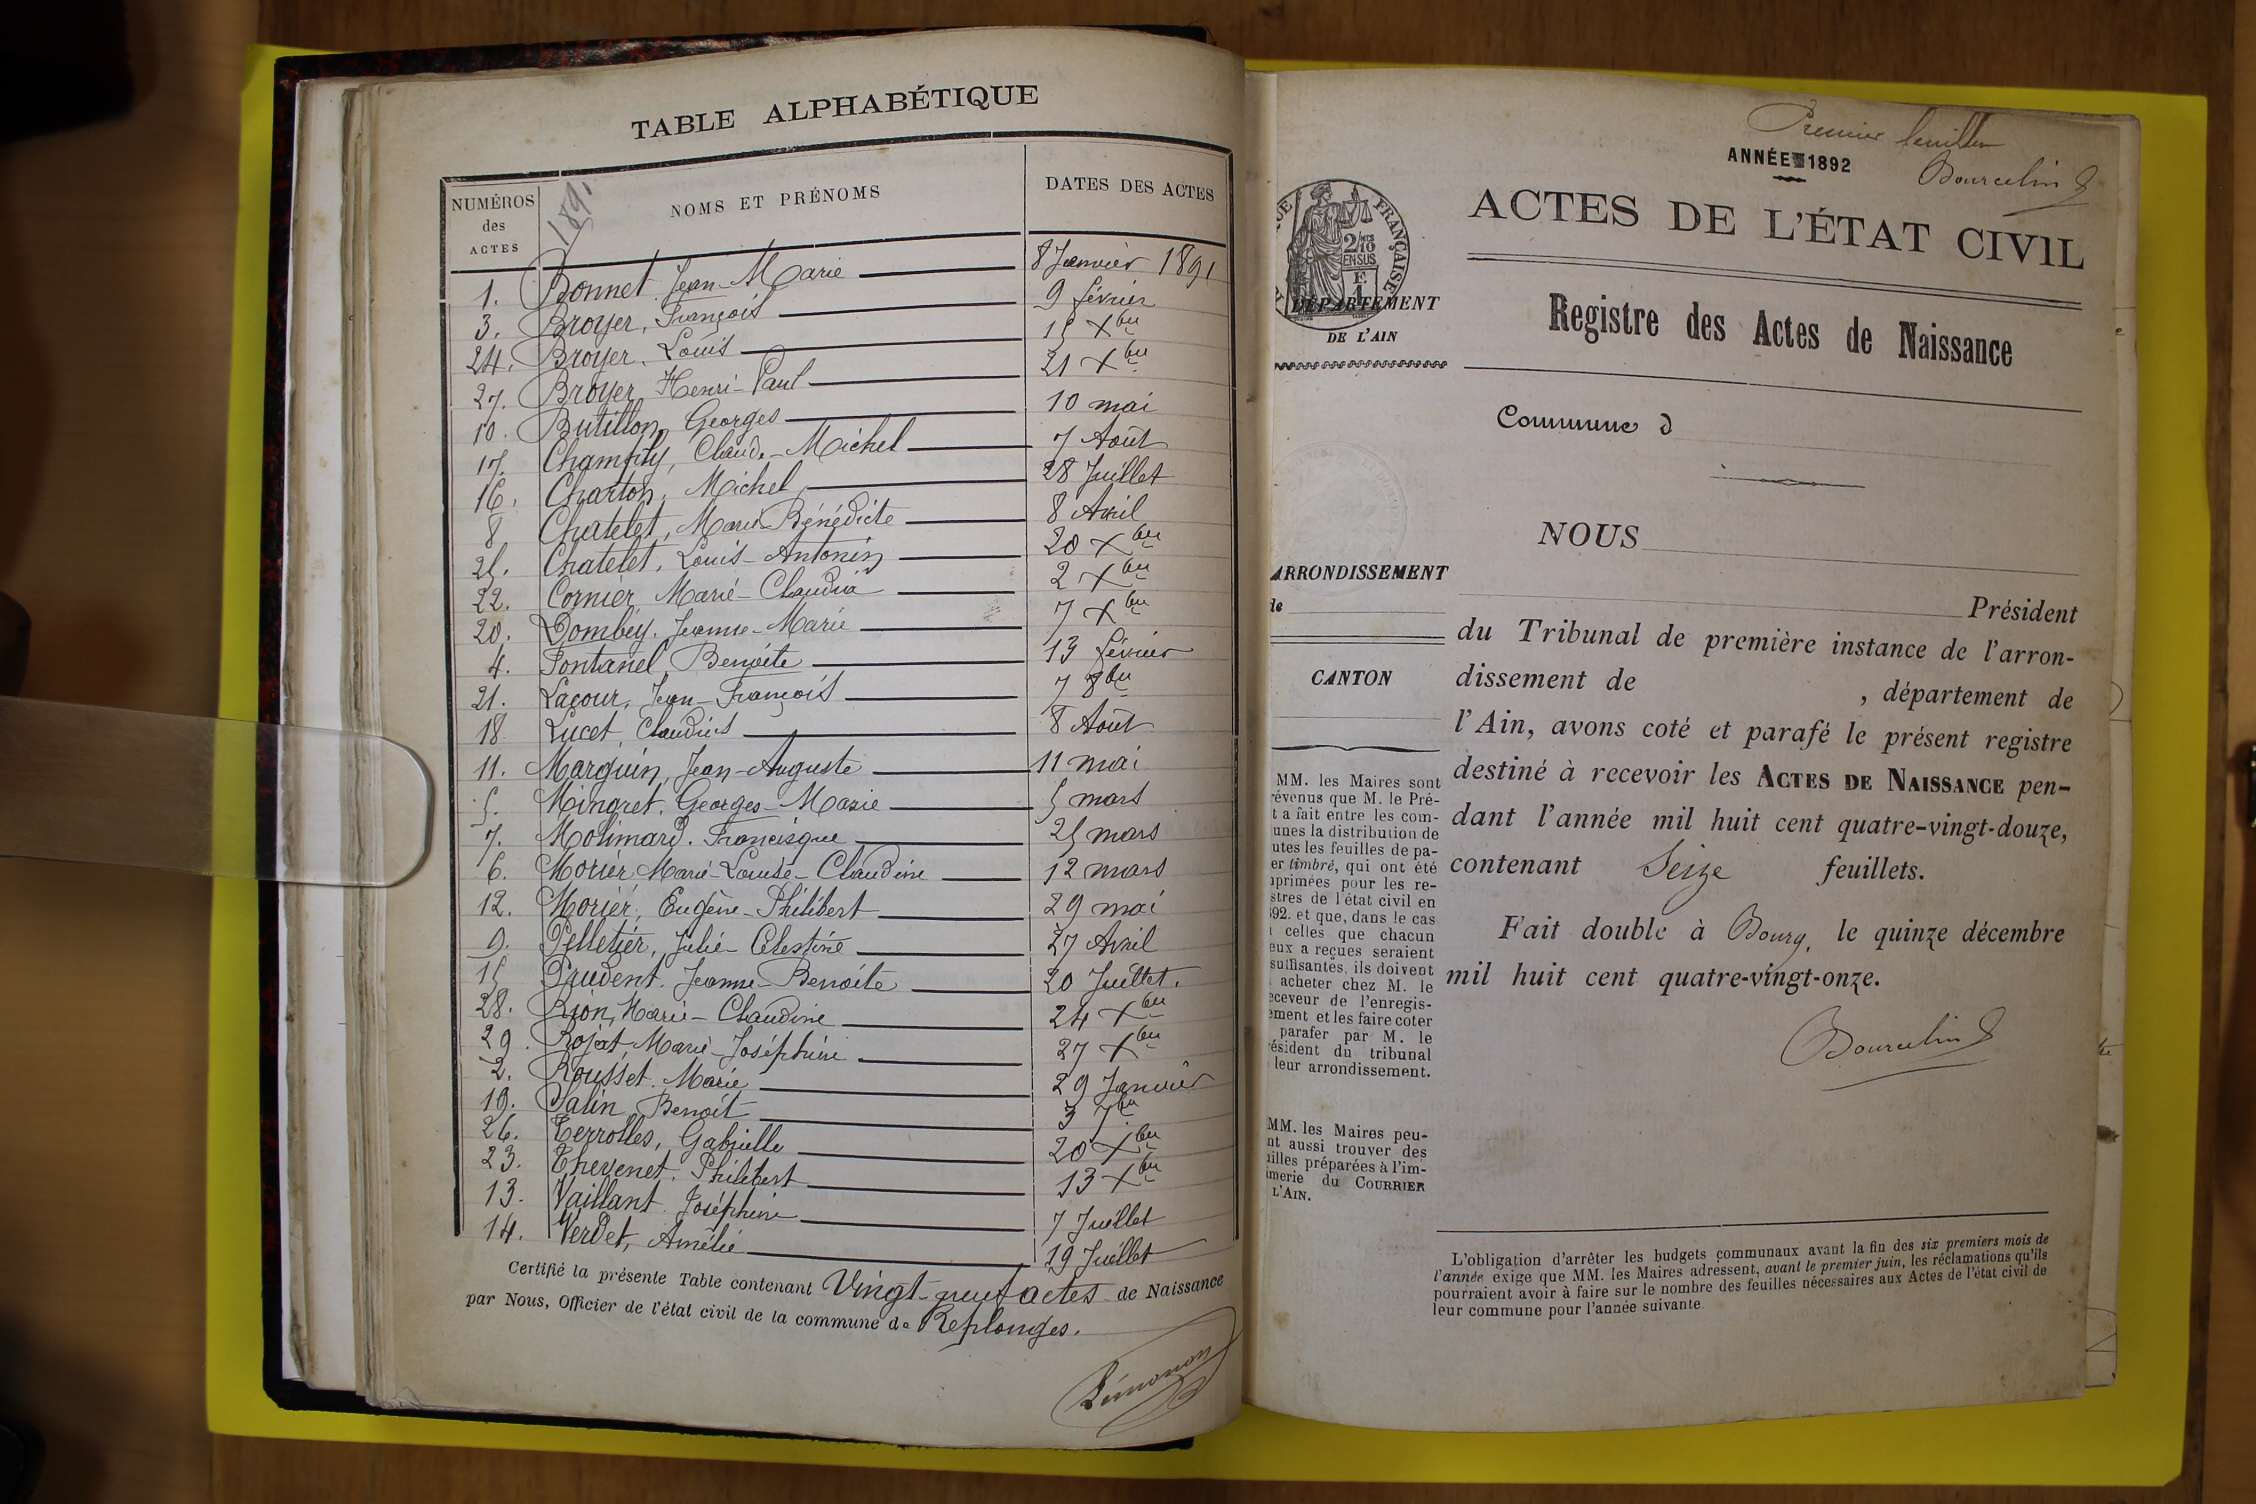 TABLE ALPHABÉTIQUE
NUMÉROS des ACTES
1891
NOMS ET PRÉNOMS
DATES DES ACTES
1. Bonnet Jean-Marie 8 Janvier 1891
3. Broyer, François 9 février
24. Broyer, Louis 15 Xbre
27. Broyer, Henri-Paul 21 Xbre
10. Butillon, Georges 10 mai
17. Champily, Claude-Michel 7 Août
16. Charton, Michel 28 Juillet
8 Chatelet, Marie-Bénédicte 8 Avril
25. Chatelet, Louis-Antonin 20 Xbre
22. Cornier, Marie-Claudia 2 Xbre
20. Dombey, Jeanne-Marie 7 Xbre
4. Fontanel, Benoîte 13 février
21. Lacour, Jean-François 7 8bre
18 Lucet, Claudius 8 Août
11. Marguin, Jean-Auguste 11 mai
5. Mingret, Georges-Marie 5 mars
7. Molimard, Francisque 25 mars
6. Morier Marie-Louise-Claudine 12 mars
12. Morier, Eugène-Philibert 29 mai
9. Pelletier, Julie-Célestine 27 Avril
15 Prudent, Jeanne-Benoîte 20 Juillet.
28. Rion, Marie-Claudine 24 Xbre
29. Rojat Marie-Joséphine 27 Xbre
2. Rousset, Marie 29 Janvier
19. Salin, Benoît 3 7bre
26. Terrolles, Gabrielle 20 Xbre
23. Thevenet, Philibert 13 Xbre
13. Vaillant, Joséphine 7 Juillet
14. Verdet, Amélie 19 Juillet
Certifié la présente Table contenant Vingt-neuf actes de Naissance
par Nous, Officier de l'état civil de la commune de Replonges.
Premier feuillet
Bourcelin
ANNÉE 1892
ACTES DE L'ÉTAT CIVIL
UE FRANÇAISE
2/10
EN SUS
DÉPARTEMENT
DE L'AIN
Registre des Actes de Naissance
Commune d
NOUS
ARRONDISSEMENT
de
Président
du Tribunal de première instance de l'arron-
CANTON
dissement de , département de
l'Ain, avons coté et parafé le présent registre
destiné à recevoir les ACTES DE NAISSANCE pen-
dant l'année mil huit cent quatre-vingt-douze,
contenant Seize feuillets.
Fait double à Bourg, le quinze décembre
mil huit cent quatre-vingt-onze.
Bourcelin
MM. les Maires sont
évenus que M. le Pré-
t a fait entre les com-
unes la distribution de
utes les feuilles de pa-
er timbré, qui ont été
primées pour les re-
stres de l'état civil en
92. et que, dans le cas
celles que chacun
eux a reçues seraient
suffisantes, ils doivent
acheter chez M. le
eceveur de l'enregis-
ement et les faire coter
parafer par M. le
résident du tribunal
leur arrondissement.
MM. les Maires peu-
nt aussi trouver des
uilles préparées à l'im-
imerie du COURRIER
L'AIN.
L'obligation d'arrêter les budgets communaux avant la fin des six premiers mois de
l'année exige que MM. les Maires adressent, avant le premier juin, les réclamations qu'ils
pourraient avoir à faire sur le nombre des feuilles nécessaires aux Actes de l'état civil de
leur commune pour l'année suivante.